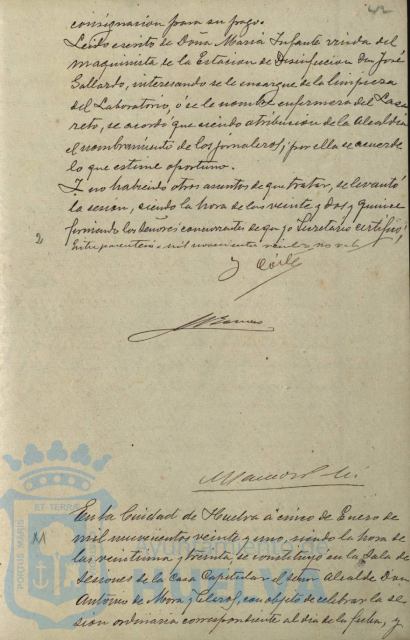 42
consignacion para su pago.
Leido escrito de Doña Maria Infante viuda del
maquinista de la Estacion de Desinfeccion don José
Gallardo, interesando se le encargue de la limpieza
del Laboratorio, ó se le nombre enfermera del Laza
reto, se acordó que siendo atribucion de la Alcaldia
el nombramiento de los jornaleros, por ella se acuerde
lo que estime oportuno.
Y no habiendo otros asuntos de que tratar, se levantó
la sesion, siendo la hora de las veinte y dos y quince
firmando los Señores concurrentes de que yo Secretario certifico,
Entre parentesis = mil novecientos veinte = no vale
PORTUS MARIS
ET TERRÆ
En la Ciudad de Huelva á cinco de Enero de
mil novecientos veinte y uno, siendo la hora de
las veintiuna y treinta, se constituyó en la Sala de
Sesiones de la Casa Capitular el señor Alcalde Don
Antonio de Mora y Claros, con objeto de celebrar la se
sion ordinaria correspondiente al dia de la fecha, y